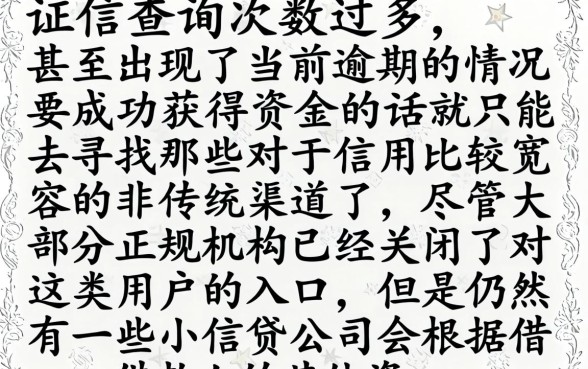 证信查询次数过多，
甚至出现了当前逾期的情况
要成功获得资金的话就只能
去寻找那些对于信用比较宽
容的非传统渠道了，尽管大
部分正规机构已经关闭了对
这类用户的入口，但是仍然
有一些小信贷公司会根据借